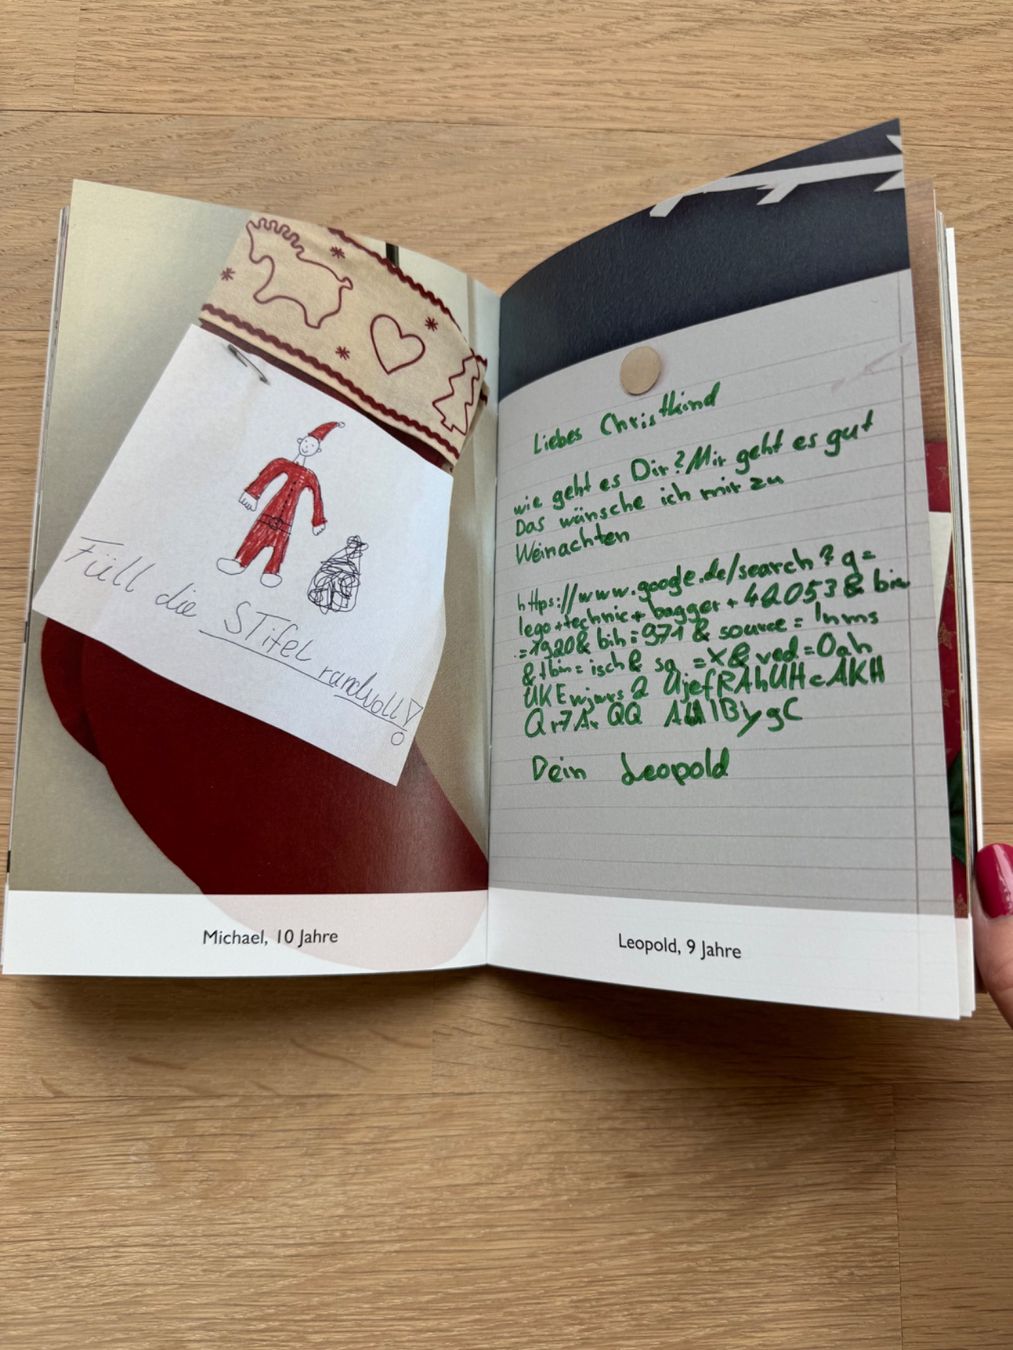 Füll die STifel randvoll!
Michael, 10 Jahre
Liebes Christkind
wie geht es Dir? Mir geht es gut
Das wünsche ich mir zu
Weinachten
https://www.google.de/search?q=
lego+technic+bagger+42053&biw
=1920&bih=971&source=lnms
&tbm=isch&sa=X&ved=0ah
UKEwjwrs2UjefRAhUHcAKH
Qr7ArQQ AUIBygC
Dein Leopold
Leopold, 9 Jahre